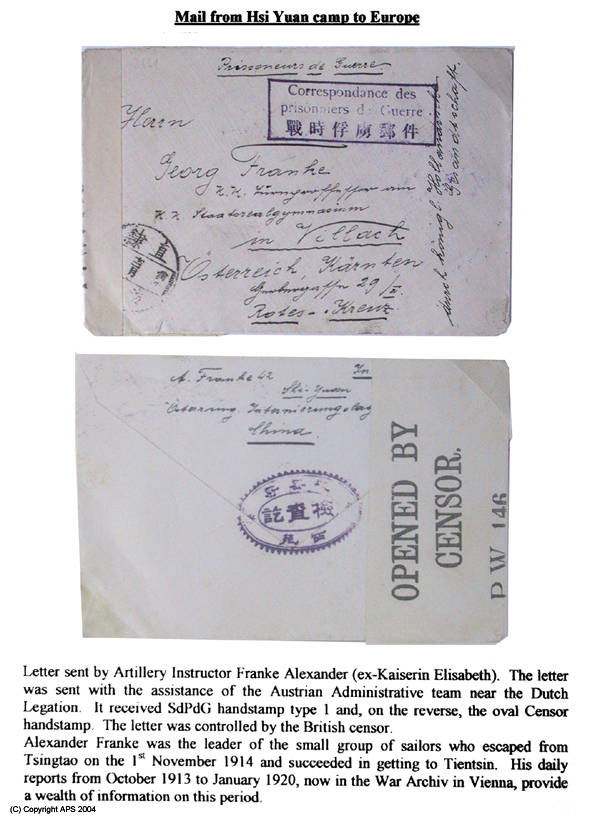 Mail from Hsi Yuan camp to Europe
Prisoneurs de Guerre
Correspondance des
prisonniers de Guerre
戰時俘虜郵件
Herrn
Georg Franke
K.K. Turnprofessor am
K.K. Staatsrealgymnasium
in Villach
Österreich, Kärnten
29/II.
Rotes-Kreuz
durch königl. Holländische
Gesandtschaft
A. Franke 42
Shi-Yuan
China
檢查訖
西苑
OPENED BY
CENSOR.
P W 146
Letter sent by Artillery Instructor Franke Alexander (ex-Kaiserin Elisabeth). The letter
was sent with the assistance of the Austrian Administrative team near the Dutch
Legation. It received SdPdG handstamp type 1 and, on the reverse, the oval Censor
handstamp. The letter was controlled by the British censor.
Alexander Franke was the leader of the small group of sailors who escaped from
Tsingtao on the 1st November 1914 and succeeded in getting to Tientsin. His daily
reports from October 1913 to January 1920, now in the War Archiv in Vienna, provide
a wealth of information on this period.
(C) Copyright APS 2004